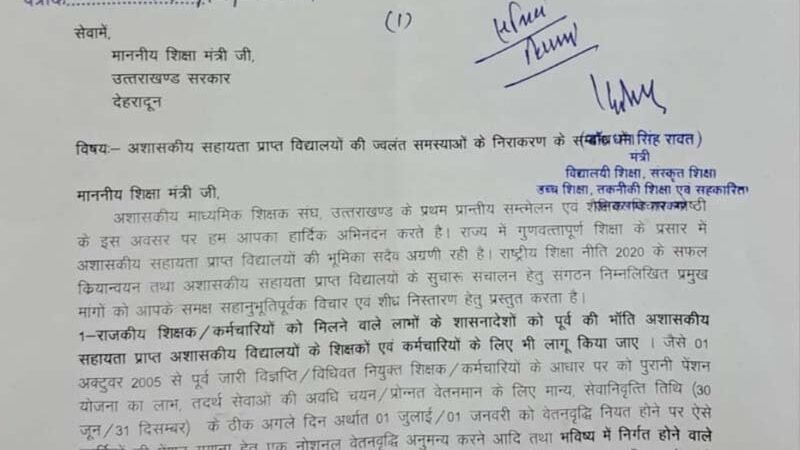 पत्रांक
(1)
सेवामें,
माननीय शिक्षा मंत्री जी,
उत्तराखण्ड सरकार
देहरादून
विषयः– अशासकीय सहायता प्राप्त विद्यालयों की ज्वलंत समस्याओं के निराकरण के
सिंह रावत)
मंत्री
विद्यालयी शिक्षा, संस्कृत शिक्षा
उच्च शिक्षा, तकनीकी शिक्षा एवं सहकारिता
माननीय शिक्षा मंत्री जी,
अशासकीय माध्यमिक शिक्षक संघ, उत्तराखण्ड के प्रथम प्रान्तीय सम्मेलन एवं
के इस अवसर पर हम आपका हार्दिक अभिनदन करते है। राज्य में गुणवत्तापूर्ण शिक्षा के प्रसार में
अशासकीय सहायता प्राप्त विद्यालयों की भूमिका सदैव अग्रणी रही है। राष्ट्रीय शिक्षा नीति 2020 के सफल
क्रियान्वयन तथा अशासकीय सहायता प्राप्त विद्यालयों के सुचारू सचालन हेतु संगठन निम्नलिखित प्रमुख
मांगों को आपके समक्ष सहानुभूतिपूर्वक विचार एवं शीघ्र निस्तारण हेतु प्रस्तुत करता है।
1–राजकीय शिक्षक/कर्मचारियों को मिलने वाले लाभों के शासनादेशों को पूर्व की भाँति अशासकीय
सहायता प्राप्त अशासकीय विद्यालयों के शिक्षकों एवं कर्मचारियों के लिए भी लागू किया जाए । जैसे 01
अक्टुवर 2005 से पूर्व जारी विज्ञप्ति/विधिवत नियुक्त शिक्षक/कर्मचारियों के आधार पर को पुरानी पेंशन
योजना का लाभ, तदर्थ सेवाओं की अवधि चयन/प्रोन्नत वेतनमान के लिए मान्य, सेवानिवृत्ति तिथि (30
जून/31 दिसम्बर) के ठीक अगले दिन अर्थात 01 जुलाई/01 जनवरी को वेतनवृद्धि नियत होने पर ऐसे
हेतु एक नोशनल वेतनवृद्धि अनुमन्य करने आदि तथा भविष्य में निर्गत होने वाले